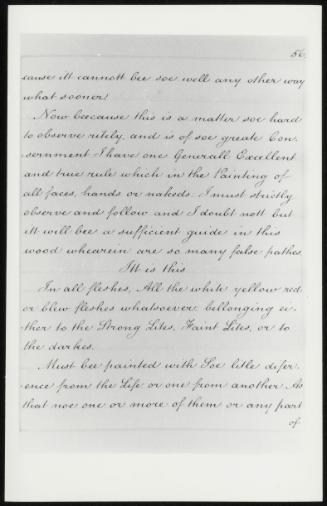 56.
cause itt cannott bee soe well any other way
what sooner!
Now beecause this is a matter soe hard
to observe ritely, and is of soe greate Con.
sernment I have one Generall Excellent
and true rule which in the Painting of
all faces, hands or nakeds. I must strictly
observe and follow and I doubt nott but
itt will bee a sufficient guide in this
wood whearein are so many false pathes.
Itt is this
In all fleshes, All the white yellow red
or blew fleshes whatsoever billonging ei-
ther to the Strong Lites, Faint Lites, or to
the darkes.
Must bee painted with Soe litle difer-
ence from the Life or one from another. As
that noe one or more of them or any part
of